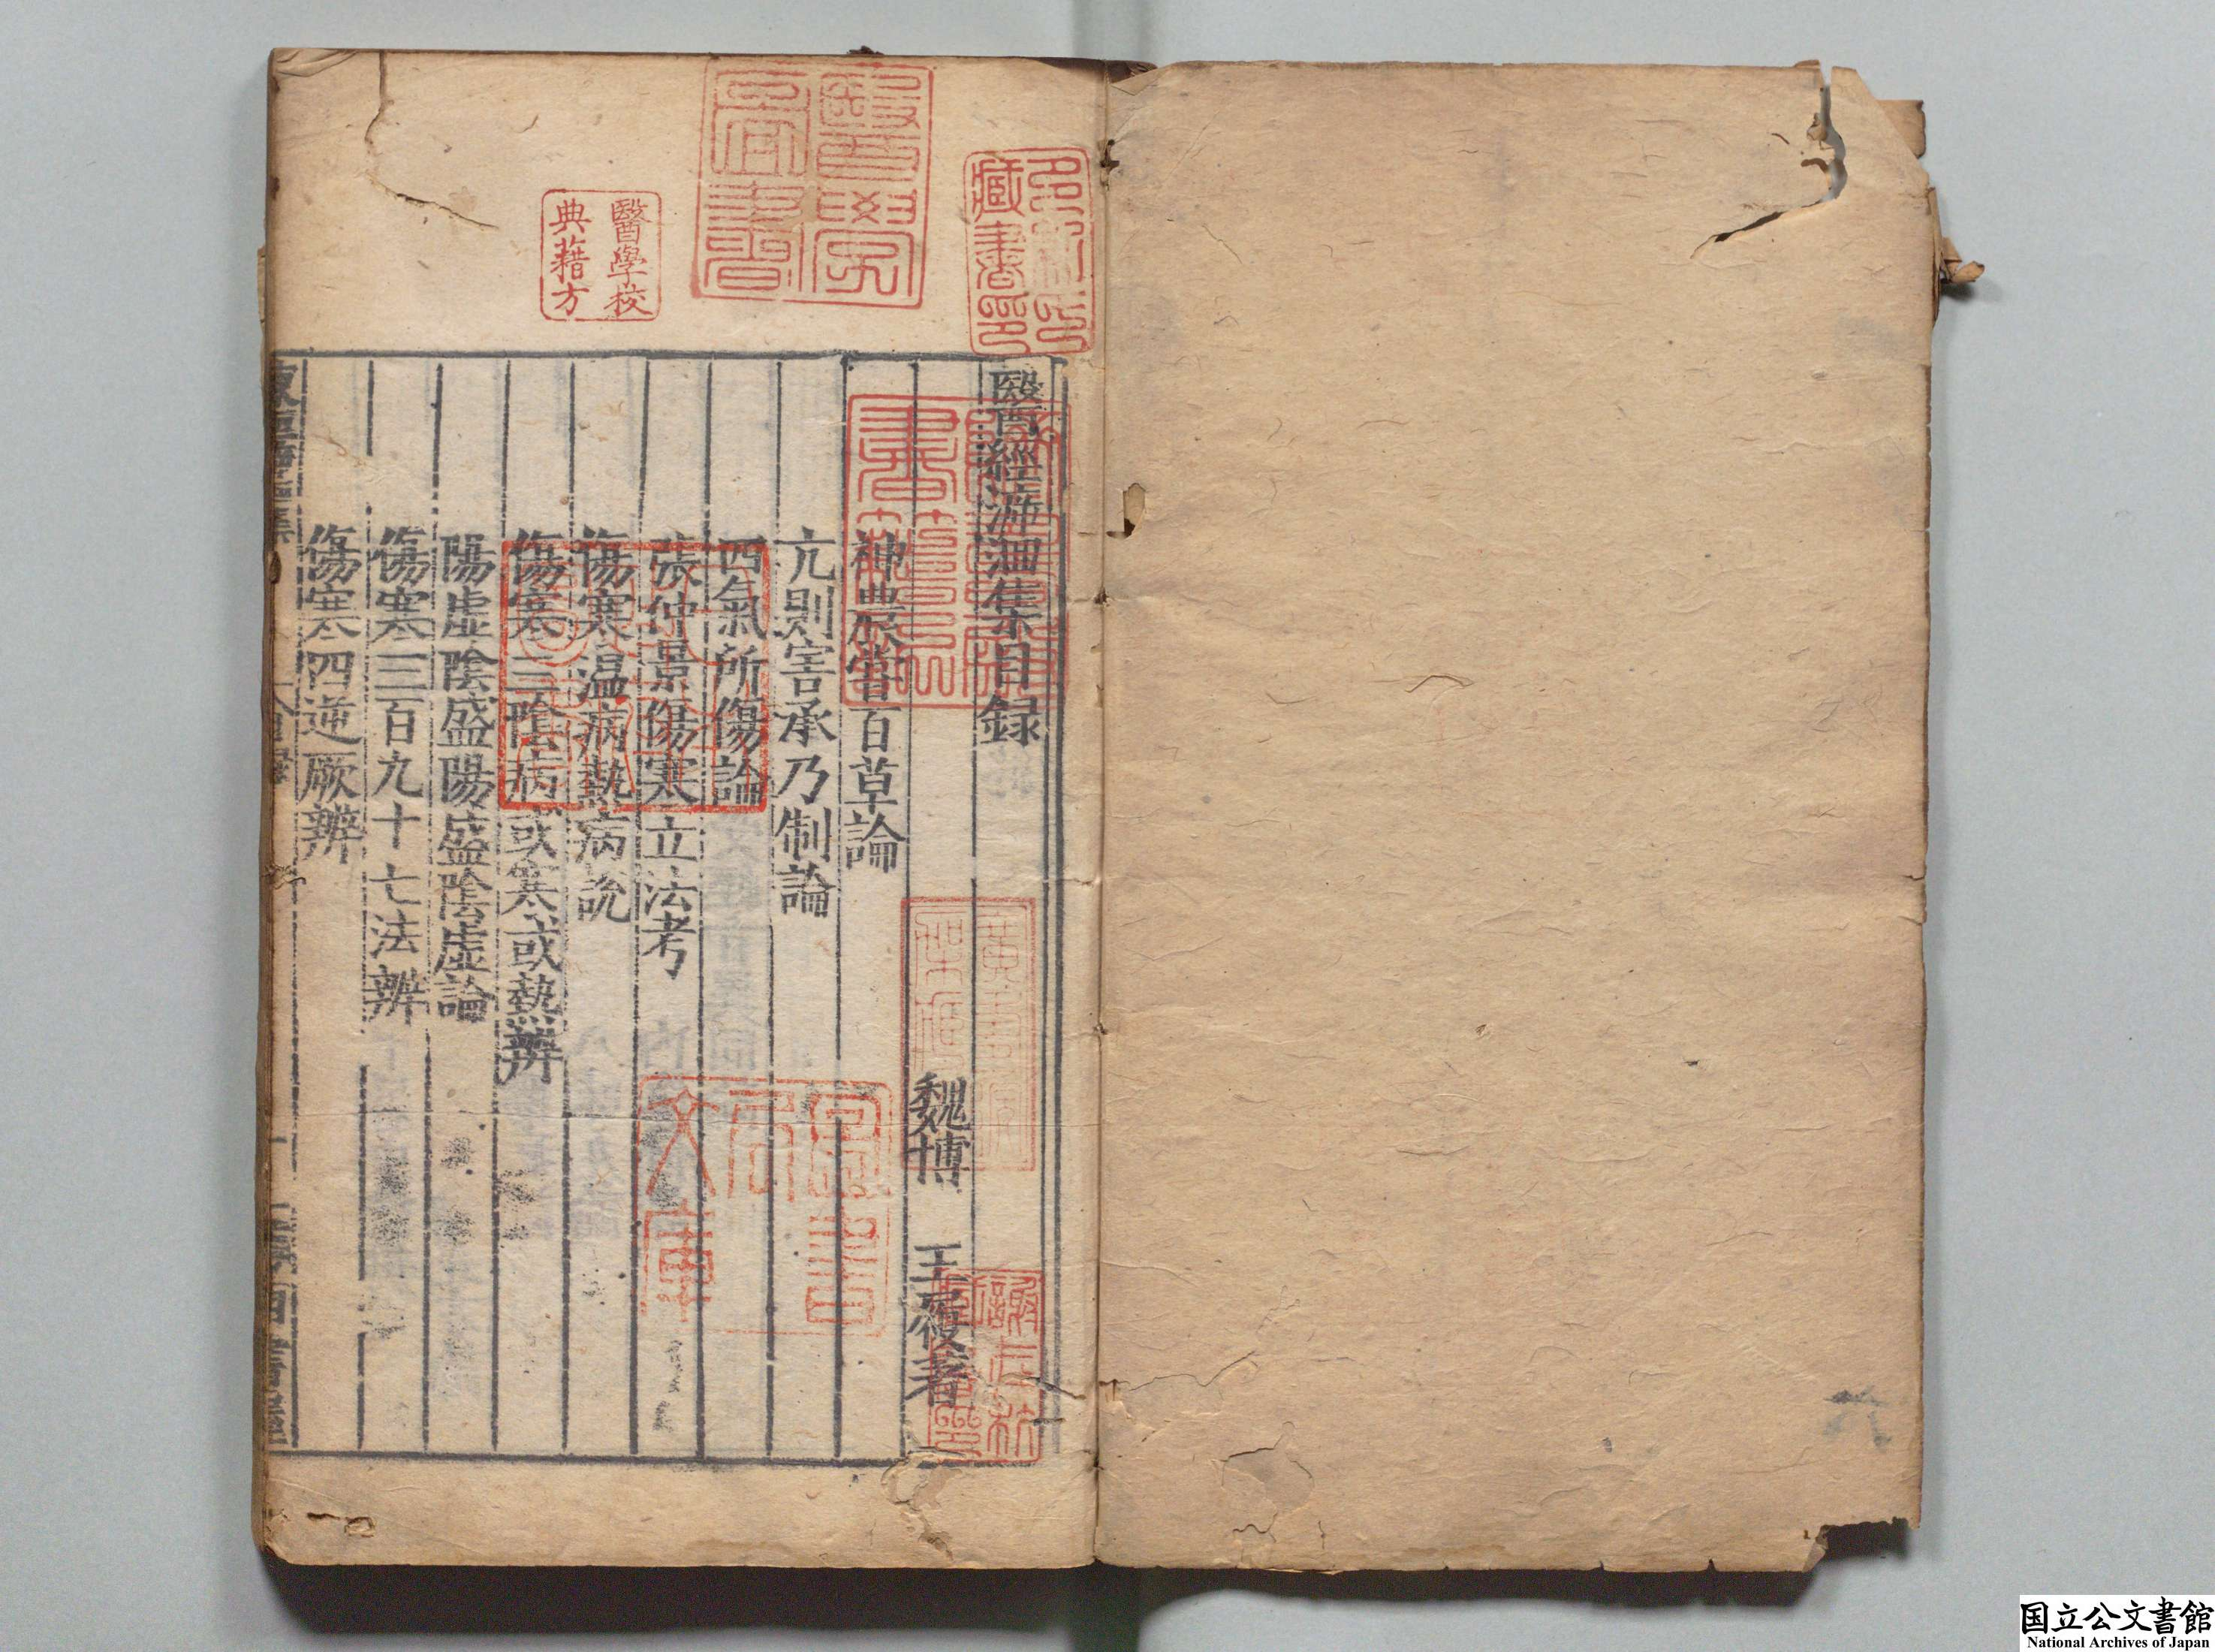 醫經溯洄集目錄
魏博 王履著
神農嘗百草論
亢則害承乃制論
四氣所傷論
張仲景傷寒立法考
傷寒溫病熱病說
傷寒三陰病或寒或熱辨
陽虛陰盛陽盛陰虛論
傷寒三百九十七法辨
傷寒四逆厥辨
醫學校
典籍方
醫學
圖書
藏書印
六
国立公文書館
National Archives of Japan